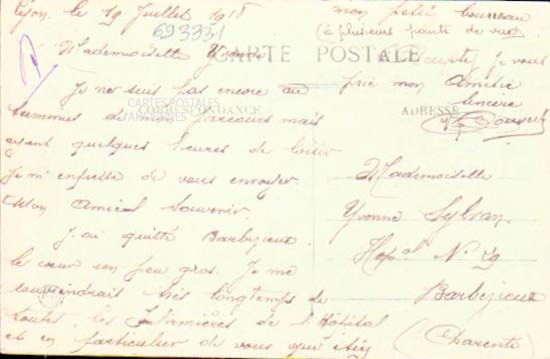 Lyon. le 19 Juillet 1918
693331
Mademoiselle Yvonne
Je ne suis pas encore au
terminus de mon parcours mais
ayant quelques heures de loisir
je m'empresse de vous envoyer
Mon Amical Souvenir.
J'ai quitté Barbezieux
le cœur un peu gros. Je me
souviendrais très longtemps de
toutes les Infirmières de l'Hôpital
et en particulier de vous qui étiez
mon petit bourreau
(à plusieurs points de vue)
je vous
prie mon Amitié
sincère
CARTE POSTALE
CARTES POSTALES
ANCIENNES
CORRESPONDANCE
ADRESSE
Mademoiselle
Yvonne Sylvan
Hopal N° 29
Barbezieux
(Charente)